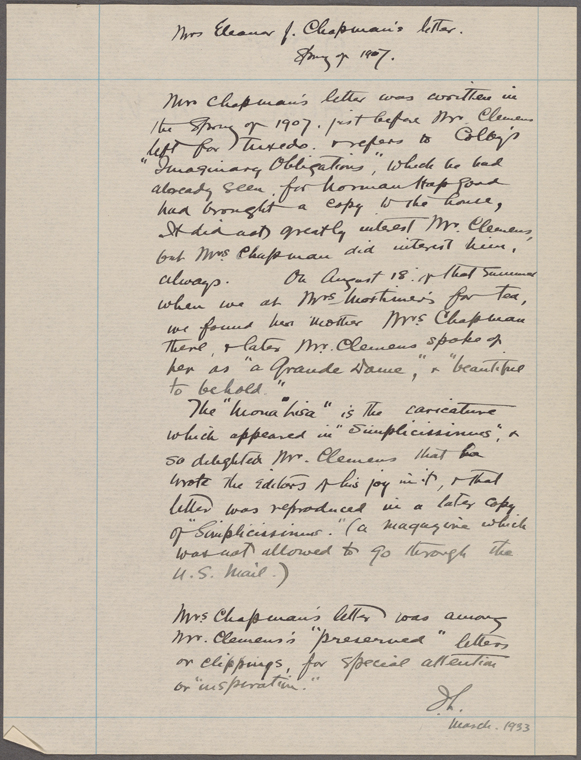 Mrs Eleanor J. Chapman's letter.
Spring of 1907.
Mrs Chapman's letter was written in
the Spring of 1907. just before Mr. Clemens
left for Tuxedo. & refers to Colby's
"Imaginary Obligations", which he had
already seen, for Norman Hapgood
had brought a copy to the house,
It did not greatly interest Mr. Clemens,
but Mrs Chapman did interest him,
always. On August 18. of that Summer
when we at Mrs Mortimer's for tea,
we found her mother Mrs Chapman
there, & later Mr. Clemens spoke of
her as "a Grande Dame", & "beautiful
to behold."
The "Mona Lisa" is the caricature
which appeared in "Simplicissimus", &
so delighted Mr. Clemens that he
wrote the Editors of his joy in it, & that
letter was reproduced in a later copy
of "Simplicissimus." (a magazine which
was not allowed to go through the
U.S. Mail.)
Mrs Chapman's letter was among
Mr. Clemens's "preserved" letters
or clippings, for special attention
or "inspiration."
March. 1933